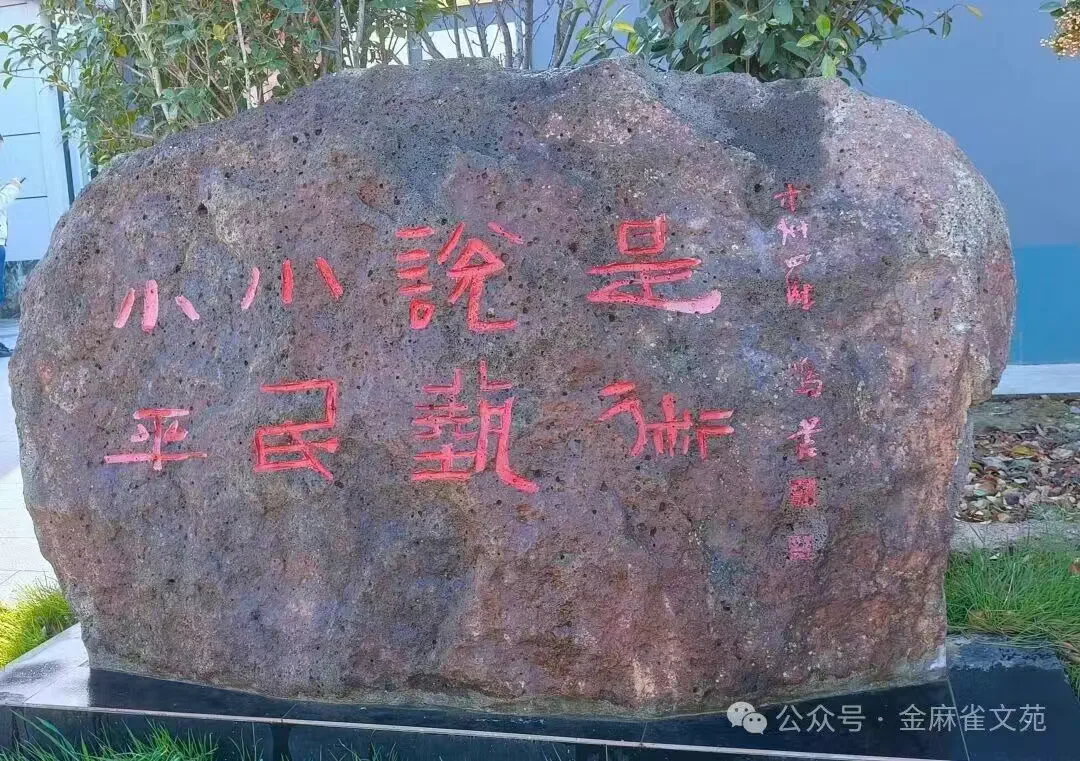 小小説是
平民藝術
公众号·金麻雀文苑